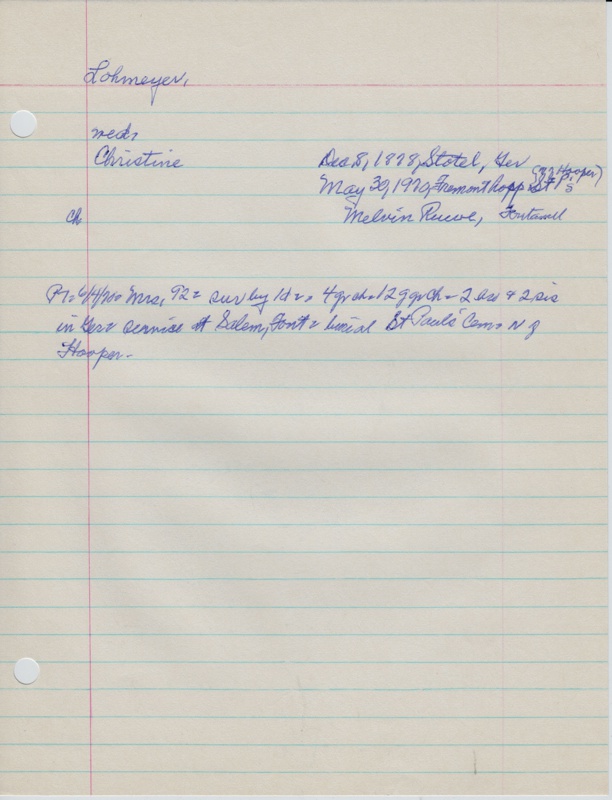 Lohmeyer,
wed,
Christine Dec 8, 1878, Stotel, Ger
(N Hooper)
May 30, 1970, Fremont hosp St P's
Ch Melvin Ruwe, Fontanell
6/4/70 Mrs, 92 = sur by 1d = 4 gr ch = 12 g gr ch = 2 & 2 sis
in Ger = service at Salem, Font = burial St Pauls' Cem = N of
Hooper -